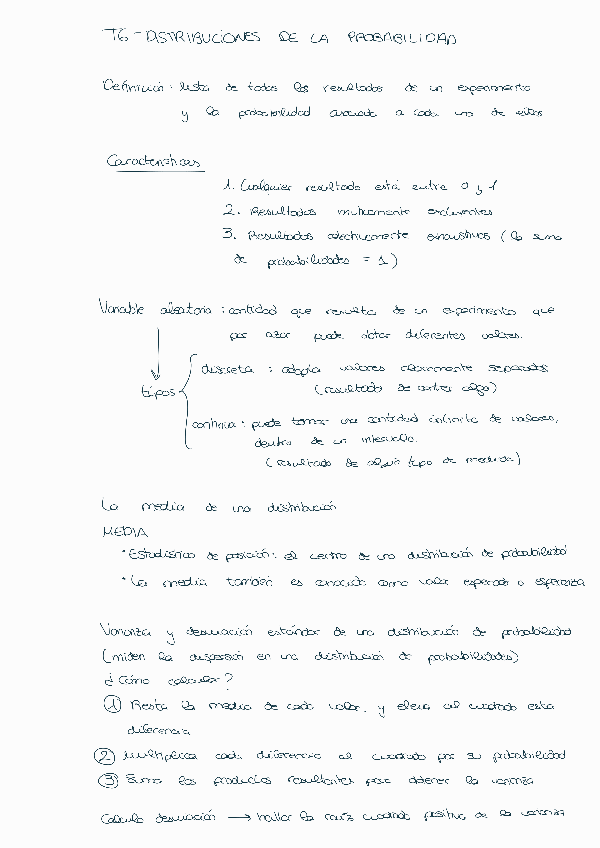 T6 - DISTRIBUCIONES DE LA PROBABILIDAD
Definición: lista de todos los resultados de un experimento
y la probabilidad asociada a cada uno de ellos
Características
1. Cualquier resultado está entre 0 y 1
2. Resultados mutuamente excluyentes
3. Resultados colectivamente exhaustivos (la suma
de probabilidades = 1)
Variable aleatoria: cantidad que resulta de un experimento que
por azar puede adoptar diferentes valores.
tipos
discreta: adopta valores claramente separados
(resultado de contar algo)
continua: puede tomar una cantidad infinita de valores,
dentro de un intervalo.
(resultado de algún tipo de medida)
La media de una distribución
MEDIA
· Estadístico de posición: el centro de una distribución de probabilidad
· La media también es conocida como valor esperado o esperanza
Varianza y desviación estándar de una distribución de probabilidad
(miden la dispersión en una distribución de probabilidades)
¿Cómo calcular?
① Resta la media de cada valor, y eleva al cuadrado esta
diferencia
② multiplica cada diferencia al cuadrado por su probabilidad
③ Suma los productos resultantes para obtener la varianza
Calcula desviación → hallar la raíz cuadrada positiva de la varianza